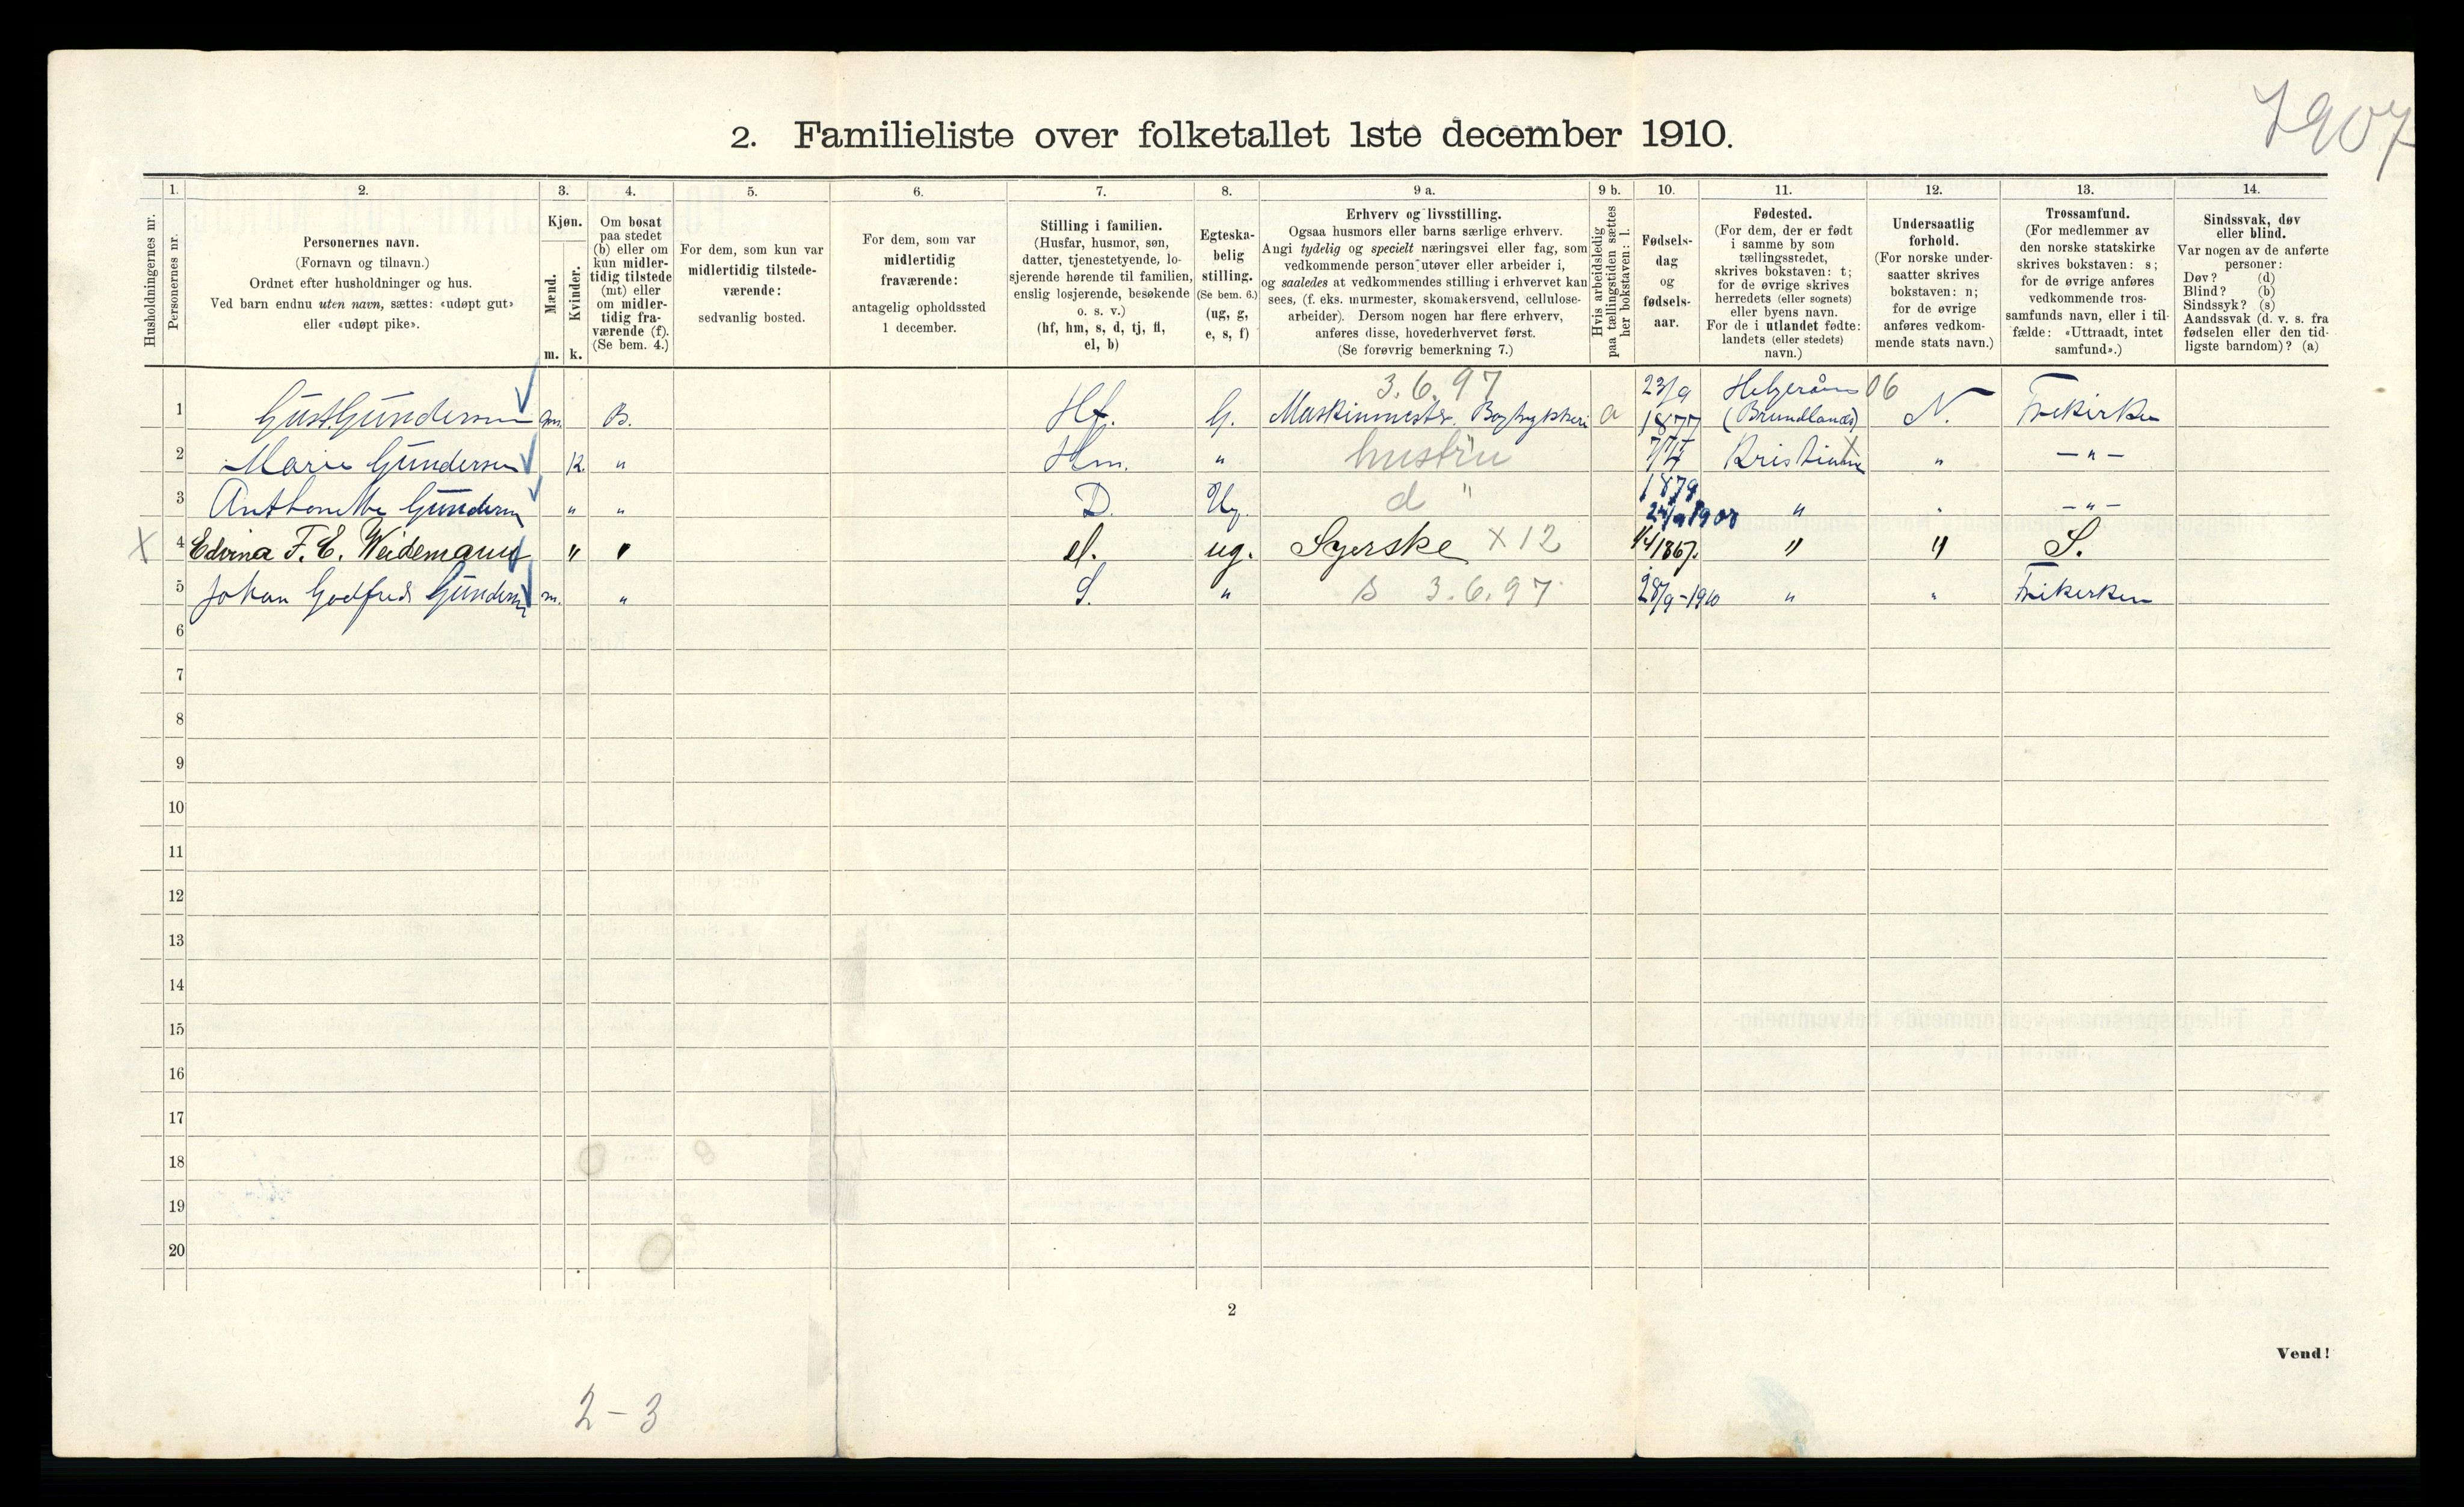 7907
2. Familieliste over folketallet 1ste december 1910.
1. 2. 3. 4. 5. 6. 7. 8. 9 a. 9 b. 10. 11. 12. 13. 14.
Husholdningernes nr.
Personernes nr.
Personernes navn.
(Fornavn og tilnavn.)
Ordnet efter husholdninger og hus.
Ved barn endnu uten navn, sættes: «udøpt gut»
eller «udøpt pike».
Kjøn.
Mænd.
Kvinder.
m. k.
Om bosat
paa stedet
(b) eller om
kun midler-
tidig tilstede
(mt) eller
om midler-
tidig fra-
værende (f).
(Se bem. 4.)
For dem, som kun var
midlertidig tilstede-
værende:
sedvanlig bosted.
For dem, som var
midlertidig
fraværende:
antagelig opholdssted
1 december.
Stilling i familien.
(Husfar, husmor, søn,
datter, tjenestetyende, lo-
sjerende hørende til familien,
enslig losjerende, besøkende
o. s. v.)
(hf, hm, s, d, tj, fl,
el, b)
Egteska-
belig
stilling.
(Se bem. 6.)
(ug, g,
e, s, f)
Erhverv og livsstilling.
Ogsaa husmors eller barns særlige erhverv.
Angi tydelig og specielt næringsvei eller fag, som
vedkommende person utøver eller arbeider i,
og saaledes at vedkommendes stilling i erhvervet kan
sees, (f. eks. murmester, skomakersvend, cellulose-
arbeider). Dersom nogen har flere erhverv,
anføres disse, hovederhvervet først.
(Se forøvrig bemerkning 7.)
Hvis arbeidsledig
paa tællingstiden sættes
her bokstaven: l.
Fødsels-
dag
og
fødsels-
aar.
Fødested.
(For dem, der er født
i samme by som
tællingsstedet,
skrives bokstaven: t;
for de øvrige skrives
herredets (eller sognets)
eller byens navn.
For de i utlandet fødte:
landets (eller stedets)
navn.)
Undersaatlig
forhold.
(For norske under-
saatter skrives
bokstaven: n;
for de øvrige
anføres vedkom-
mende stats navn.)
Trossamfund.
(For medlemmer av
den norske statskirke
skrives bokstaven: s;
for de øvrige anføres
vedkommende tros-
samfunds navn, eller i til-
fælde: «Uttraadt, intet
samfund».)
Sindssvak, døv
eller blind.
Var nogen av de anførte
personer:
Døv? (d)
Blind? (b)
Sindssyk? (s)
Aandssvak (d. v. s. fra
fødselen eller den tid-
ligste barndom)? (a)
3.6.97 23/9 06
1 Gust. Gundersen m. B. Hf. G. Maskinmester. a 1877 (Brundlanes) N. Frikirken
2 Marie Gundersen K. " Hm. " hustru 1879 Kristiania " – " –
3 Anthonette Gundersen " " D. Ug. d " 1908 " " – " –
X 4 Edvina F. E. Weidemann " " el. ug. Syerske X 12 1/4 1867. " " S.
5 Johan Godfred Gundersen m. " S. " s 3.6.97 28/9-1910 " " Frikirken
6
7
8
9
10
11
12
13
14
15
16
17
18
19
20
2
Vend!
2 – 3